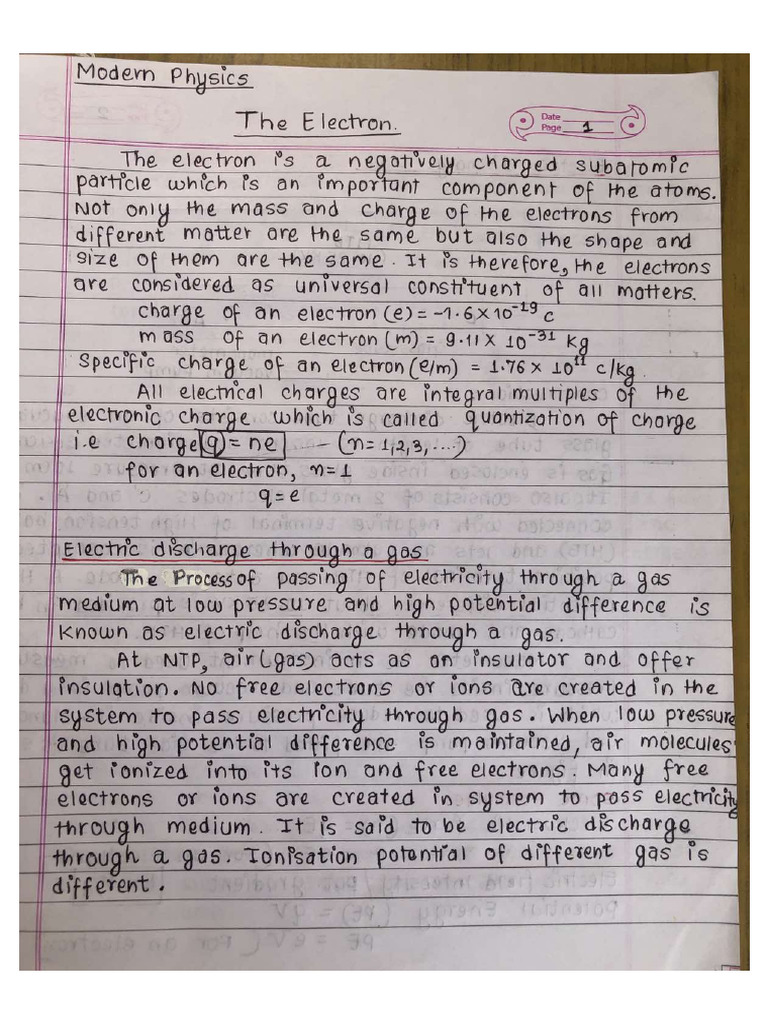 Modern Physics
The Electron.
Date
Page 1
The electron is a negatively charged subatomic
particle which is an important component of the atoms.
Not only the mass and charge of the electrons from
different matter are the same but also the shape and
size of them are the same. It is therefore, the electrons
are considered as universal constituent of all matters.
charge of an electron (e) = -1.6 × 10⁻¹⁹ c
mass of an electron (m) = 9.11 × 10⁻³¹ kg
Specific charge of an electron (e/m) = 1.76 × 10¹¹ c/kg.
All electrical charges are integral multiples of the
electronic charge which is called quantization of charge
i.e charge q = ne --- (n = 1,2,3, ....)
for an electron, n = 1
q = e
Electric discharge through a gas
The Process of passing of electricity through a gas
medium at low pressure and high potential difference is
known as electric discharge through a gas.
At NTP, air (gas) acts as an insulator and offer
insulation. No free electrons or ions are created in the
system to pass electricity through gas. When low pressure
and high potential difference is maintained, air molecules
get ionized into its ion and free electrons. Many free
electrons or ions are created in system to pass electricity
through medium. It is said to be electric discharge
through a gas. Ionisation potential of different gas is
different.